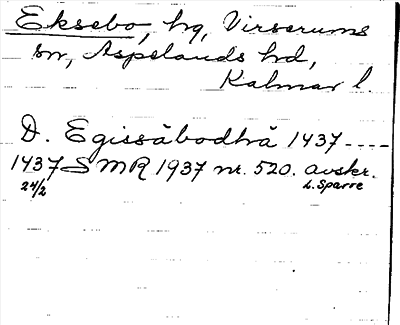 Eksebo, hg, Virserums
sn, Aspelands hd,
Kalmar l.
D. Egissäbodhå 1437 ----
1437 SMR 1937 nr. 520. avskr.
24/2 L. Sparre